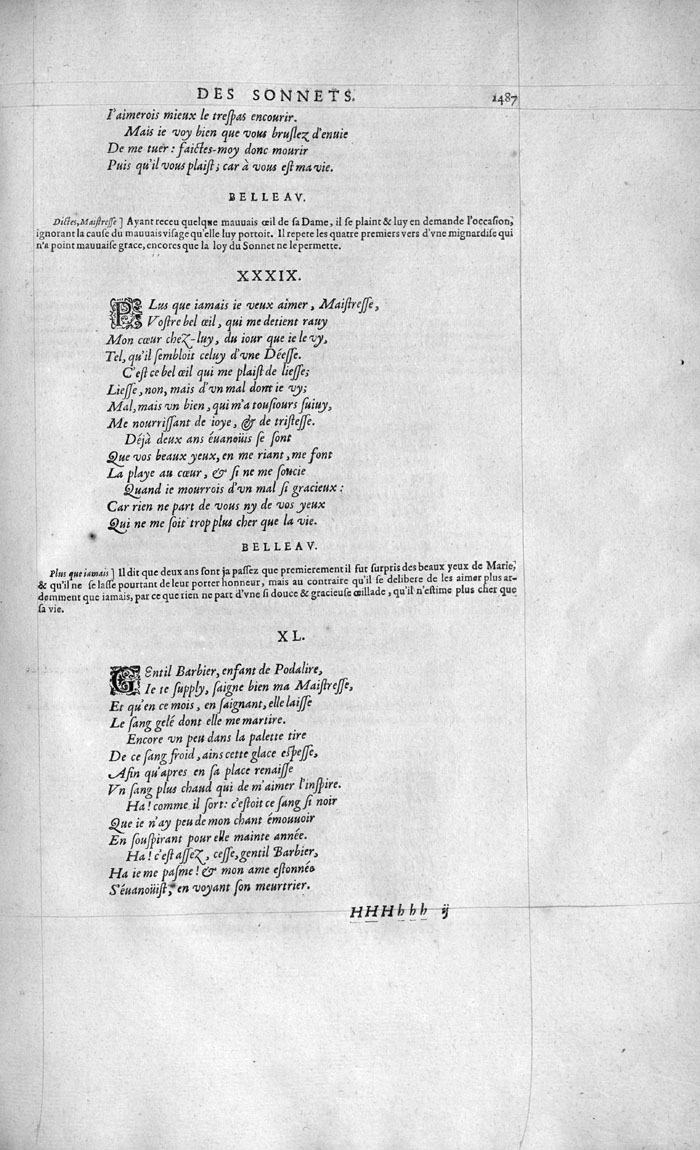 DES SONNETS. 1487
I'aimerois mieux le treſpas encourir.
Mais ie voy bien que vous bruſlez d'enuie
De me tuer: faictes-moy donc mourir
Puis qu'il vous plaiſt; car à vous eſt ma vie.
BELLEAV.
Dictes, Maiſtreſſe] Ayant receu quelque mauuais œil de ſa Dame, il ſe plaint & luy en demande l'occaſion,
ignorant la cauſe du mauuais viſage qu'elle luy portoit. Il repete les quatre premiers vers d'vne mignardiſe qui
n'a point mauuaiſe grace, encores que la loy du Sonnet ne le permette.
XXXIX.
PLus que iamais ie veux aimer, Maiſtreſſe,
Voſtre bel œil, qui me detient rauy
Mon cœur chez-luy, du iour que ie le vy,
Tel, qu'il ſembloit celuy d'vne Déeſſe.
C'eſt ce bel œil qui me plaiſt de lieſſe;
Lieſſe, non, mais d'vn mal dont ie vy;
Mal, mais vn bien, qui m'a touſiours ſuiuy,
Me nourriſſant de ioye, & de triſteſſe.
Déjà deux ans éuanoüis ſe ſont
Que vos beaux yeux, en me riant, me font
La playe au cœur, & ſi ne me ſoucie
Quand ie mourrois d'vn mal ſi gracieux:
Car rien ne part de vous ny de vos yeux
Qui ne me ſoit trop plus cher que la vie.
BELLEAV.
Plus que iamais] Il dit que deux ans ſont ja paſſez que premierement il fut ſurpris des beaux yeux de Marie,
& qu'il ne ſe laſſe pourtant de leur porter honneur, mais au contraire qu'il ſe delibere de les aimer plus ar-
demment que iamais, par ce que rien ne part d'vne ſi douce & gracieuſe œillade, qu'il n'eſtime plus cher que
ſa vie.
XL.
GEntil Barbier, enfant de Podalire,
Ie te ſupply, ſaigne bien ma Maiſtreſſe,
Et qu'en ce mois, en ſaignant, elle laiſſe
Le ſang gelé dont elle me martire.
Encore vn peu dans la palette tire
De ce ſang froid, ains cette glace eſpeſſe,
Afin qu'apres en ſa place renaiſſe
Vn ſang plus chaud qui de m'aimer l'inſpire.
Ha! comme il ſort: c'eſtoit ce ſang ſi noir
Que ie n'ay peu de mon chant émouuoir
En ſouſpirant pour elle mainte année.
Ha! c'eſt aſſez, ceſſe, gentil Barbier,
Ha ie me paſme! & mon ame eſtonnée
S'éuanoüiſt, en voyant ſon meurtrier.
HHHhhh ij